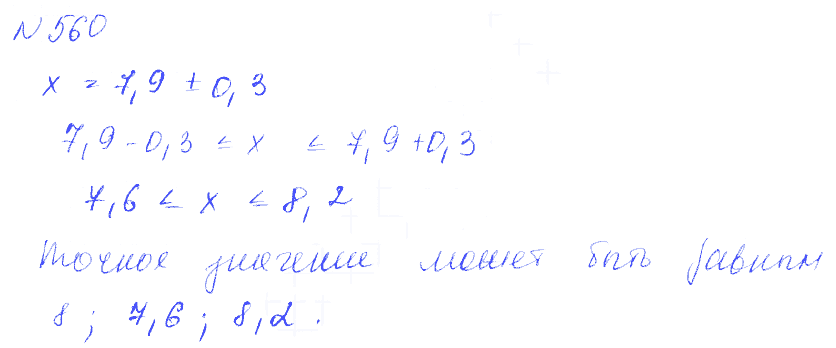 № 560
x = 7,9 ± 0,3
7,9 - 0,3 ≤ x ≤ 7,9 + 0,3
7,6 ≤ x ≤ 8,2
Точное значение может быть равным
8 ; 7,6 ; 8,2 .